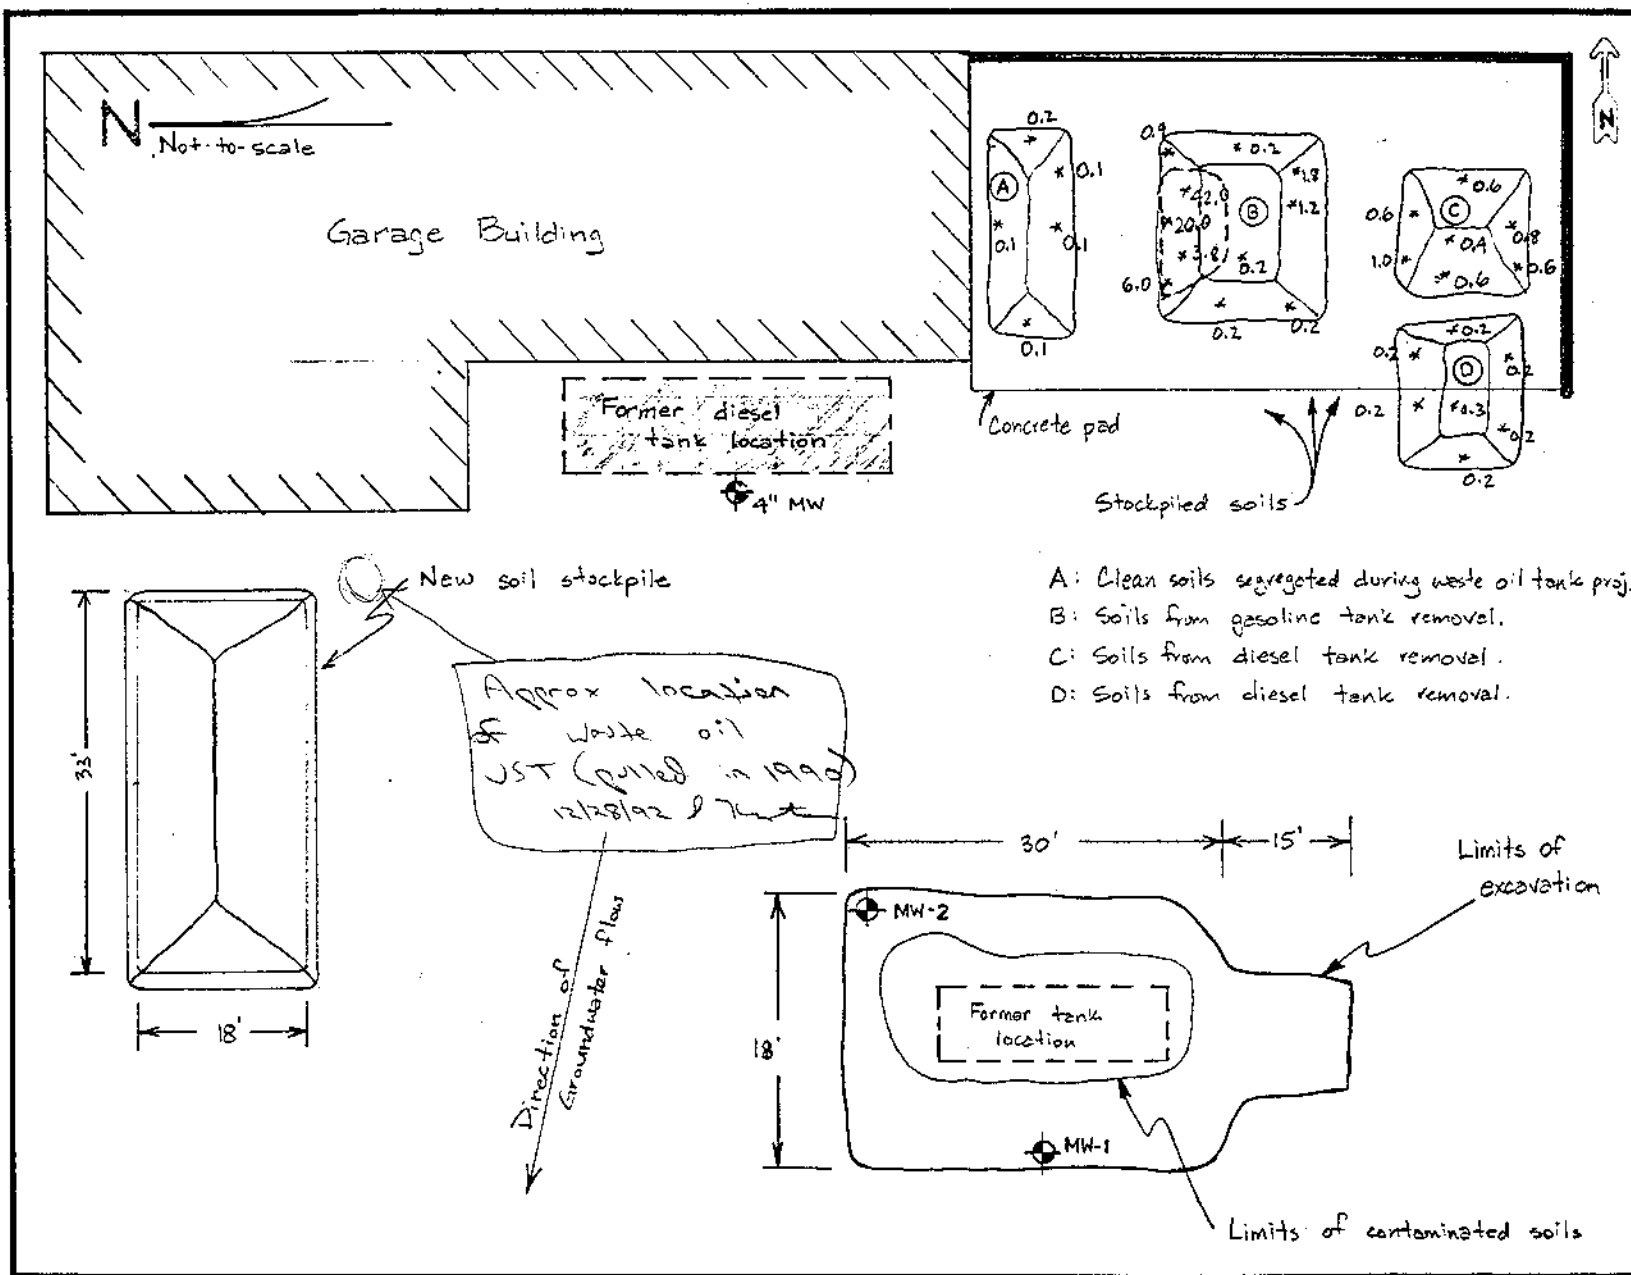 N
Not-to-scale
Garage Building
N
A
0.2
0.1
0.1
0.1
0.1
B
0.9
0.2
1.8
1.2
42.0
20.0
3.8
0.2
6.0
0.2
0.2
C
0.6
0.6
0.8
0.4
1.0
0.6
0.6
D
0.2
0.2
0.2
0.2
0.2
0.2
Former diesel
tank location
4" MW
Concrete pad
Stockpiled soils
New soil stockpile
A: Clean soils segregated during waste oil tank proj.
B: Soils from gasoline tank removal.
C: Soils from diesel tank removal.
D: Soils from diesel tank removal.
33'
18'
Approx location
of waste oil
UST (pulled in 1990)
12/28/92
Direction of
Groundwater flow
30'
15'
Limits of
excavation
MW-2
Former tank
location
18'
MW-1
Limits of contaminated soils